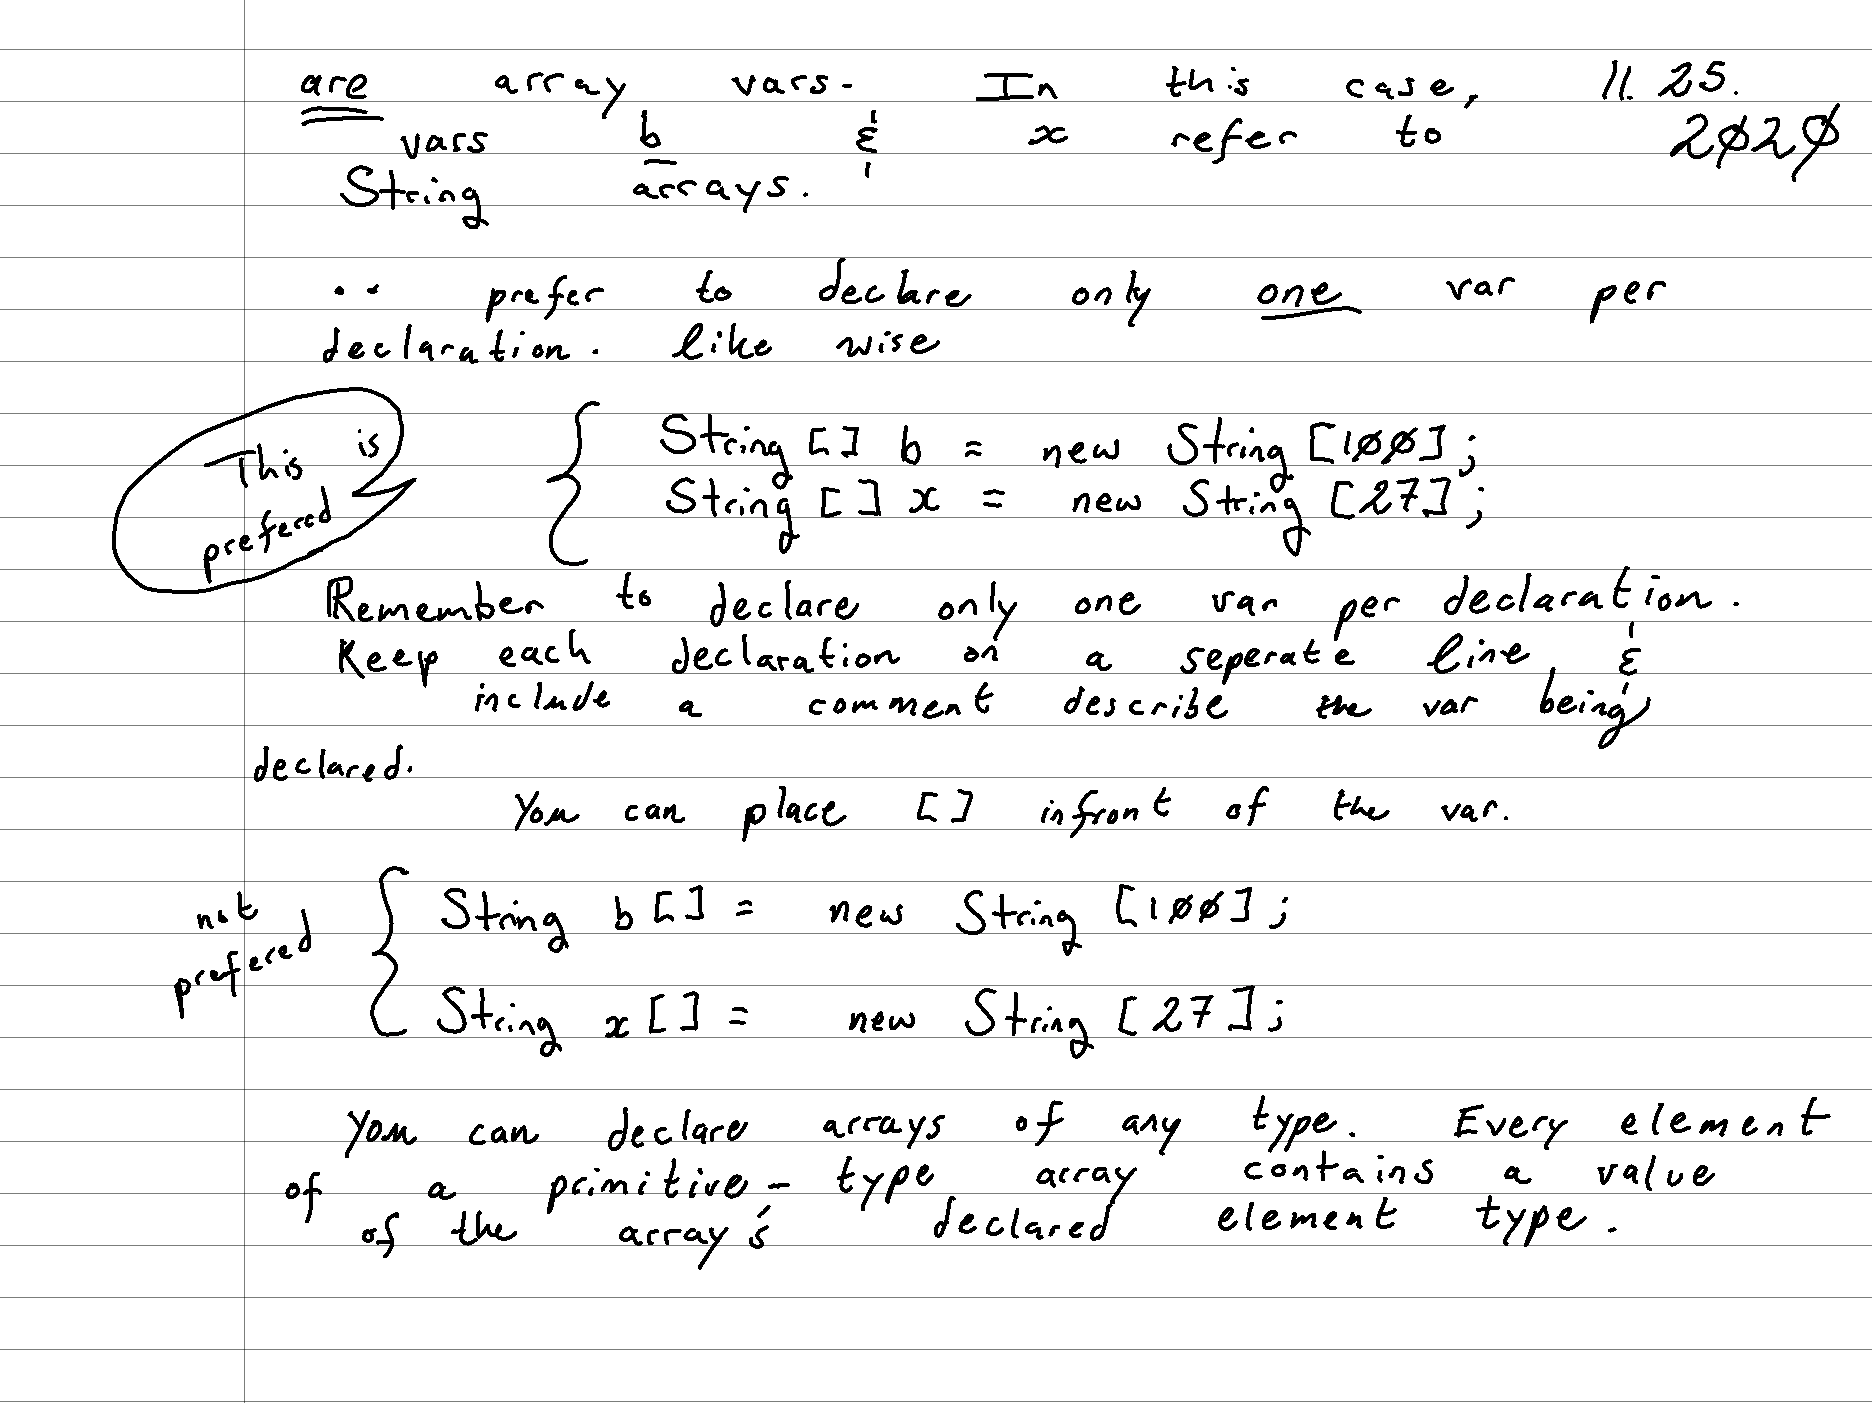 are array vars. In this case, 11. 25.
2020
vars b & x refer to
String arrays.
.. prefer to declare only one var per
declaration. like wise
This is
prefered
String [] b = new String [100];
String [] x = new String [27];
Remember to declare only one var per declaration.
Keep each declaration on a seperate line, &
include a comment describe the var being
declared.
You can place [] infront of the var.
not
prefered
String b[] = new String [100];
String x[] = new String [27];
You can declare arrays of any type. Every element
of a primitive-type array contains a value
of the array's declared element type.